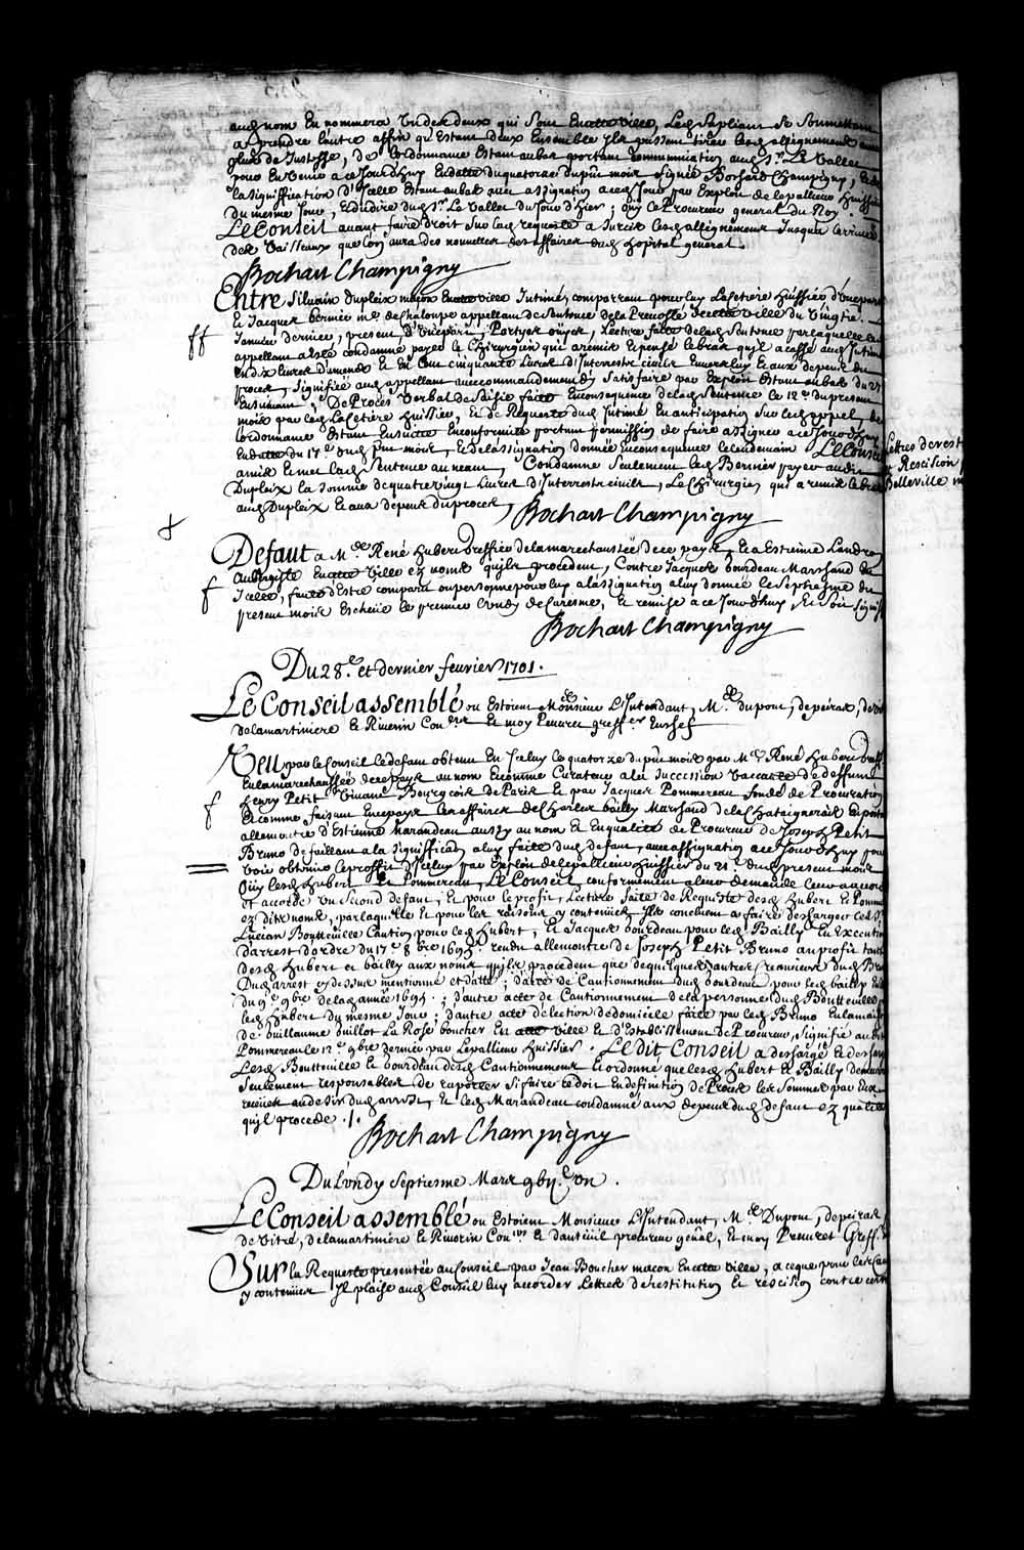 aud nom en nommera un des deux qui sont en cette ville, lesd supliant se soumettant
a prendre lautre affin qu Estant deux Ensemble ils puissent tirer lesd allignement
plus de Justesse, de lordonnance Estant au bas portant communication aud Sr Le Vallet
pour En venir a ce Jourdhuy En datte du quatorze du pnt mois signée Bochart Champigny,
la signiffication d'Icelle Estant au bas avec assignation a ced Jour par Exploit de lepallieur huissier
du mesme Jour, Et du dire dud Sr Le Vallet du Jour d'hier ; ouy le Procureur general du Roy.
Le Conseil avant faire droit sur lad requeste a surcis lesd allignement Jusqua larrivée
des Vaisseaux que lon aura des nouvelles des affaires dud hopital general.
Bochart Champigny
Entre Silvain Dupleix maçon En cette ville Intimé, comparant pour luy La Cetiere huissier d'une part
Et Jacques Bernier me de chaloupe appellant de sentence de la Prevosté de cette ville du vingt
ff
Janvier dernier, present, d'autre part, Partyes ouyes, Lecture faite de lad sentence par laquelle led
appellant a esté condamné payer le Chirurgien qui a remis Et pensé le bras qu'il a cassé aud Intimé
en dix livres d'amende Et En cinquante livres d'Interrests civils Envers luy Et aux depens du
procez, signifiée aud appellant avec commandement d'y satisfaire par Exploit Estant au bas du 27
Ensuivant, De Procès Verbal de saisie faite En consequence de lad sentence le 12e du present
mois par led La Cetiere huissier, Et de Requeste dud Intimé En anticipation sur led appel
lordonnance Estant Ensuitte En conformité portant permission de faire assigner a ce Jourdhuy
En datte du 17e dud pnt mois, Et de lassignation donnée En consequence le lendemain Le Conseil
a mis Et met lad sentence au neant, Condamne seulement led Bernier payer aud
Dupleix la somme de quatre vingt livres d'Interrests civils, Le Chirurgien qui a remis le bras
aud Dupleix Et aux depens du procez,
Bochart Champigny
Lettres de rest
Rescision
Belleville
Defaut a Me René Hubert Greffier de la marechaussée de ce pays, Et a Estienne Landron
aubergiste En cette ville ez noms qu'ils procedent, Contre Jacques bourdeau Marchand En
f
Icelle, faute d'Estre comparu ou personne pour luy a lassignation a luy donnée le septiesme du
present mois Escheüe le premier lundy de Caresme, Et remise a ce Jourdhuy, Et soit signif
Bochart Champigny
Du 28e et dernier fevrier 1701.
Le Conseil assemblé ou Estoient Monsieur L'Intendant, Mes dupont, depeiras, de vitré
delamartiniere Et Riverin Coners Et moy Peuvret greffer En chef
Veu par le Conseil le defaut obtenu En Iceluy le quatorze du pnt mois par Me René Hubert greff
En la marechaussée de ce pays au nom Et comme Curateur a la succession vaccante de deffunt
Henry Petit Vivant Bourgeois de Paris Et par Jacques Pommereau fondé de Procuration
f
Et comme faisant En ce pays les affaires de Charles bailly Marchand de la Chataigneraie
allencontre d'Estienne Marandeau aussy au nom Et En qualité de Procureur de Joseph Petit
Bruno defaillant a la signiffication a luy faite dud defaut, avec assignation a ce Jourdhuy pour
voir obtenir le proffit d'Iceluy par Exploit de lepallieur huissier du 21e dud present mois
Ouy lesd Hubert Et Pommereau, Le Conseil conformement a leur demande leur a
accordé un second defaut, Et pour le profit, Lecture faite de Requeste desd Hubert Et Pomme
ez dits noms, par laquelle Et pour les raisons y contenües Ils concluent a faire descharger led Sr
Lucian Boutteville Caution pour led Hubert, Et Jacques bourdeau pour led Bailly En Execution
d'arrest d'ordre du 17e 8bre 1695. rendu allencontre de Joseph Petit Bruno au profit tant
desd Hubert et bailly aux noms qu'ils procedent que de quelques autres creanciers dud Bru
Dud arrest cy dessus mentionné et datté ; d'acte de Cautionnement dud bourdeau pour led bailly
du 9e 9bre de lad année 1695. ; d'autre acte de Cautionnement de la personne dud Boutteville
led Hubert du mesme Jour ; d'autre acte d'élection de domicile faite par led Bruno En la maison
de Guillaume Guillot La Rose boucher En cette ville Et d'Establissement de Procureur, signifié aud
Pommereau le 12e 9bre dernier par Lepallieur huissier. Le dit Conseil a deschargé Et descharge
Lesd Boutteville Et bourdeau desd Cautionnement Et ordonné que lesd Hubert Et Bailly demeur
seulement responsables de raporter si faire se doit En definition de Procez les sommes par Eux
receües au desir dud arrest, Et led Marandeau condamné aux depens dud defaut ez qualités
qu'il procede ./.
Bochart Champigny
Du lundy septiesme Mars gbij.c un.
Le Conseil assemblé ou Estoient Monsieur L'Intendant, Mes Dupont, depeiras
de Vitré, delamartiniere Et Riverin Coners Et dauteüil procureur gñal, Et moy Peuvret Greff.
Sur la Requeste presentée au Conseil par Jean Boucher macon En cette ville, a ce que pour les raisons
y contenües Il plaise aud Conseil luy accorder Lettres de restitution Et rescision contre